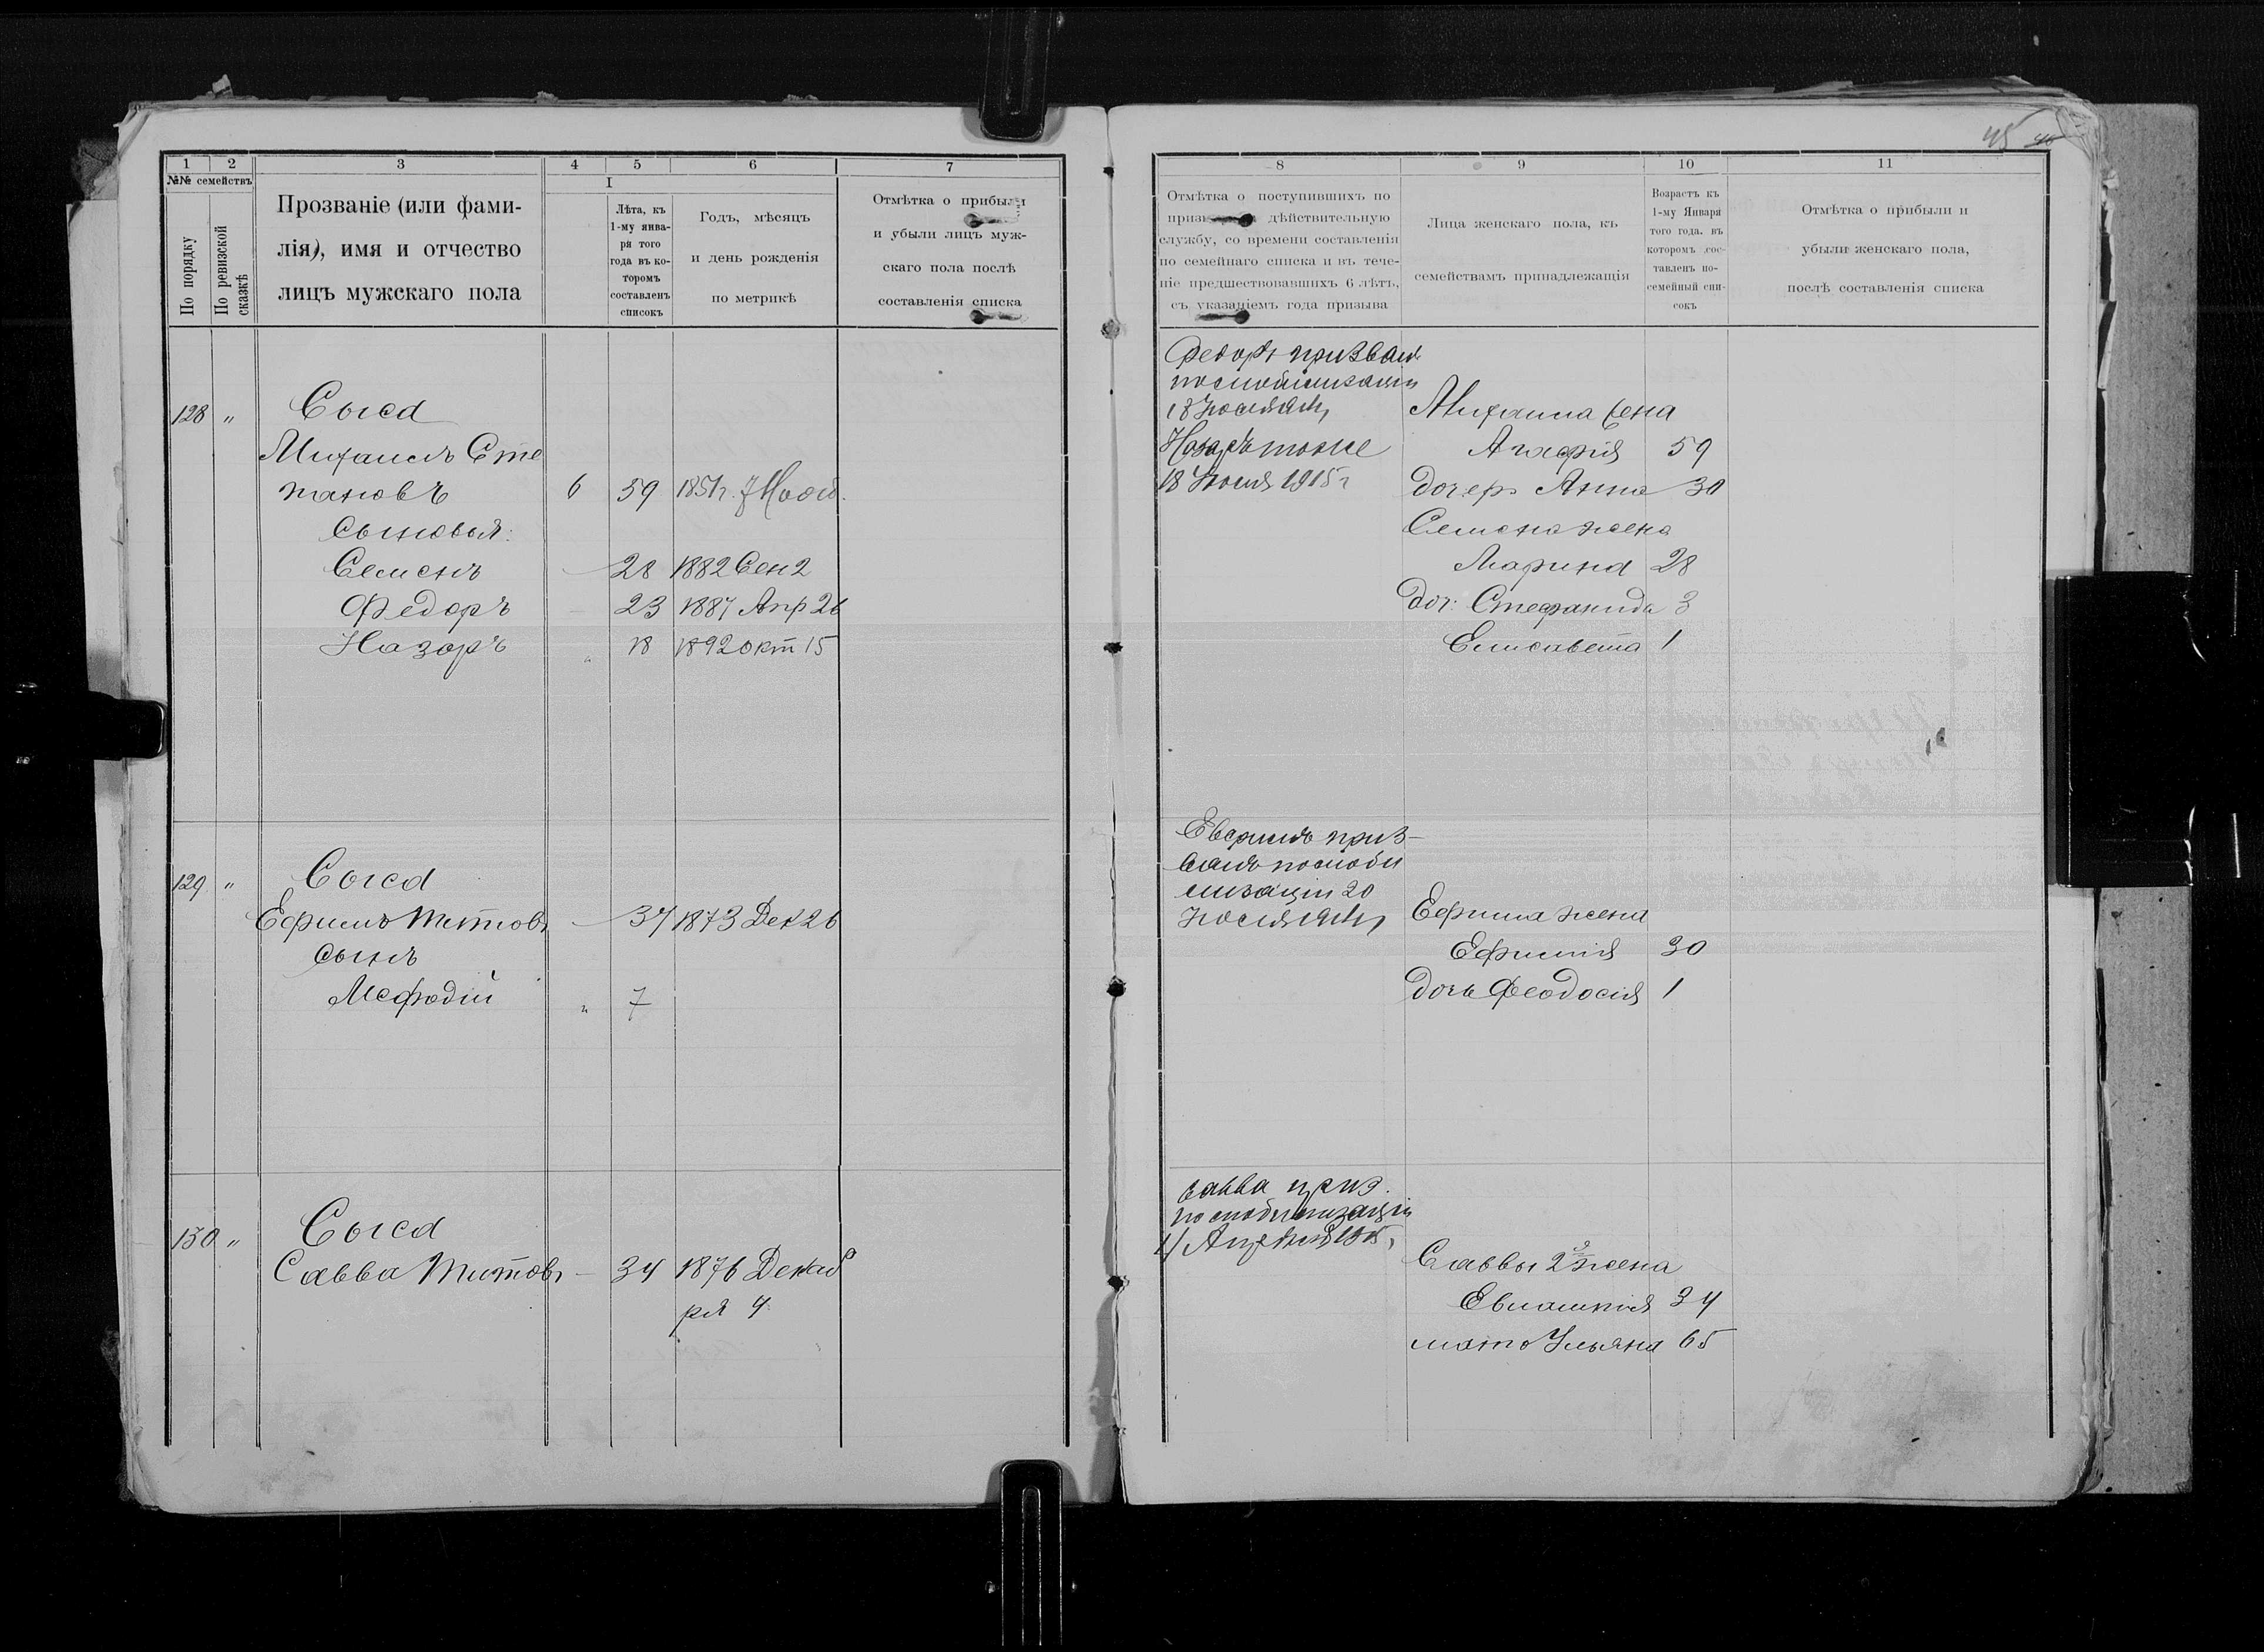 1 2 3 4 5 6 7
№№ семействъ
По порядку
По ревизской сказкѣ
Прозваніе (или фами-
лія), имя и отчество
лицъ мужскаго пола
I
Лѣта, къ
1-му янва-
ря того
года въ ко-
торомъ
составленъ
списокъ
Годъ, мѣсяцъ
и день рожденія
по метрикѣ
Отмѣтка о прибыли
и убыли лицъ муж-
скаго пола послѣ
составленія списка
128 „ Сысa
Михаилъ Сте
пановъ 6 59 1851г. 7 Нояб.
сыновья:
Семенъ 28 1882 Сен 2
Федоръ 23 1887 Апр 26
Назаръ „ 18 1892 окт 15
129 „ Сысa
Ефимъ Титовъ 37 1873 Дек 26
сынъ
Мефодій „ 7
130 „ Сысa
Савва Титовъ 34 1876 Декаб
ря 4
45
8 9 10 11
Отмѣтка о поступившихъ по
дѣйствительную
службу, со времени составленія
по семейнаго списка и въ тече-
ніе предшествовавшихъ 6 лѣтъ,
съ указаніемъ года призыва
Лица женскаго пола, къ
семействамъ принадлежащія
Возрастъ къ
1-му Января
того года. въ
которомъ сос-
тавленъ по-
семейный спи-
сокъ
Отмѣтка о прибыли и
убыли женскаго пола,
послѣ составленія списка
Федоръ призванъ
по мобилизаціи
18 Іюля 1914г
Назаръ тоже
18 Іюля 1915г
Михаила жена
Агафія 59
дочерь Анна 30
Семена жена
Марина 28
доч: Стефанида 3
Елисавета 1
Ефимъ приз-
ванъ по моби
лизаціи 20
Іюля 1914г
Ефима жена
Ефимія 30
дочь Феодосія 1
Савва приз.
по мобилизаціи
Апрѣля 1915г
Саввы 2я жена
Евлампія 34
мать Ульяна 65